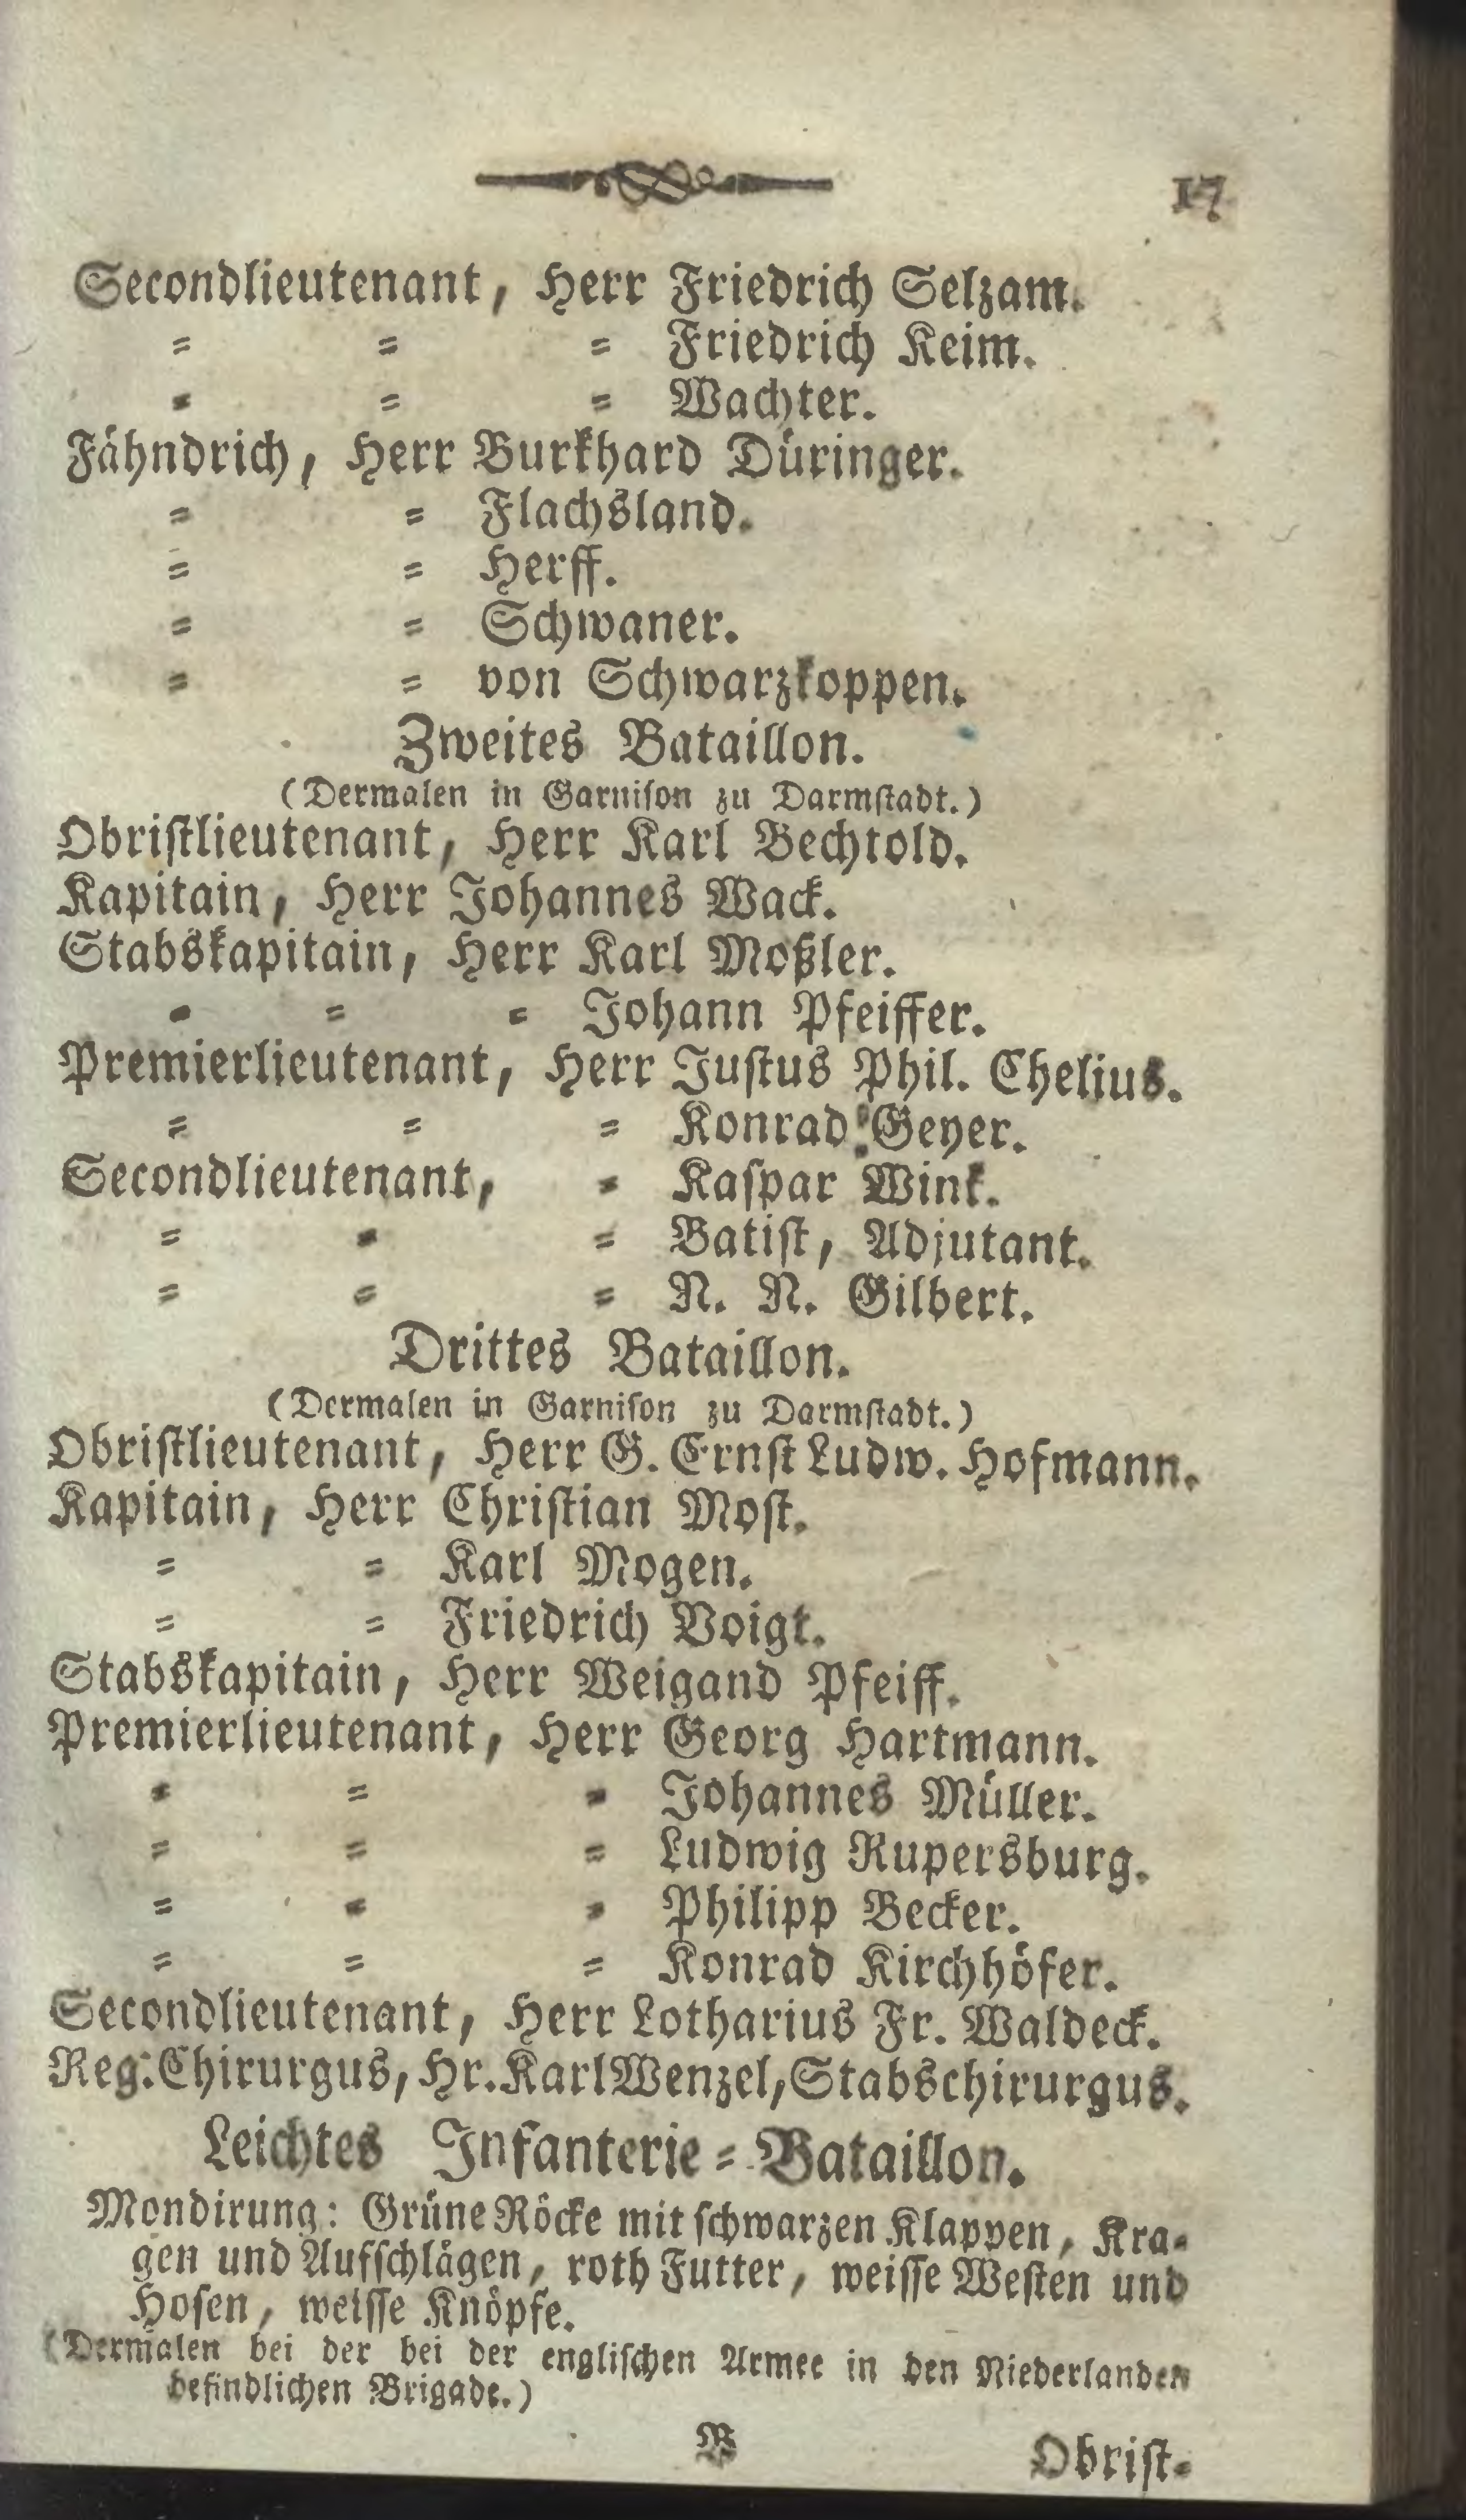 17
Secondlieutenant, Herr Friedrich Selzam.
= = = Friedrich Keim.
= = = Wachter.
Fähndrich, Herr Burkhard Düringer.
= = Flachsland.
= = Herff.
= = Schwaner.
= = von Schwarzkoppen.
Zweites Bataillon.
(Dermalen in Garniſon zu Darmſtadt.)
Obriſtlieutenant, Herr Karl Bechtold.
Kapitain, Herr Johannes Wack.
Stabskapitain, Herr Karl Moßler.
= = = Johann Pfeiffer.
Premierlieutenant, Herr Juſtus Phil. Chelius.
= = = Konrad Geyer.
Secondlieutenant, = Kaſpar Wink.
= = = Batiſt, Adjutant.
= = = N. N. Gilbert.
Drittes Bataillon.
(Dermalen in Garniſon zu Darmſtadt.)
Obriſtlieutenant, Herr G. Ernſt Ludw. Hofmann.
Kapitain, Herr Chriſtian Moſt.
= = Karl Mogen.
= = Friedrich Voigt.
Stabskapitain, Herr Weigand Pfeiff.
Premierlieutenant, Herr Georg Hartmann.
= = = Johannes Müller.
= = = Ludwig Rupersburg.
= = = Philipp Becker.
= = = Konrad Kirchhöfer.
Secondlieutenant, Herr Lotharius Fr. Waldeck.
Reg. Chirurgus, Hr. Karl Wenzel, Stabschirurgus.
Leichtes Infanterie=Bataillon.
Mondirung: Grüne Röcke mit ſchwarzen Klappen, Kra=
gen und Aufſchlägen, roth Futter, weiſſe Weſten und
Hoſen, weiſſe Knöpfe.
(Dermalen bei der bei der engliſchen Armee in den Niederlanden
befindlichen Brigade.)
B
Obriſt=